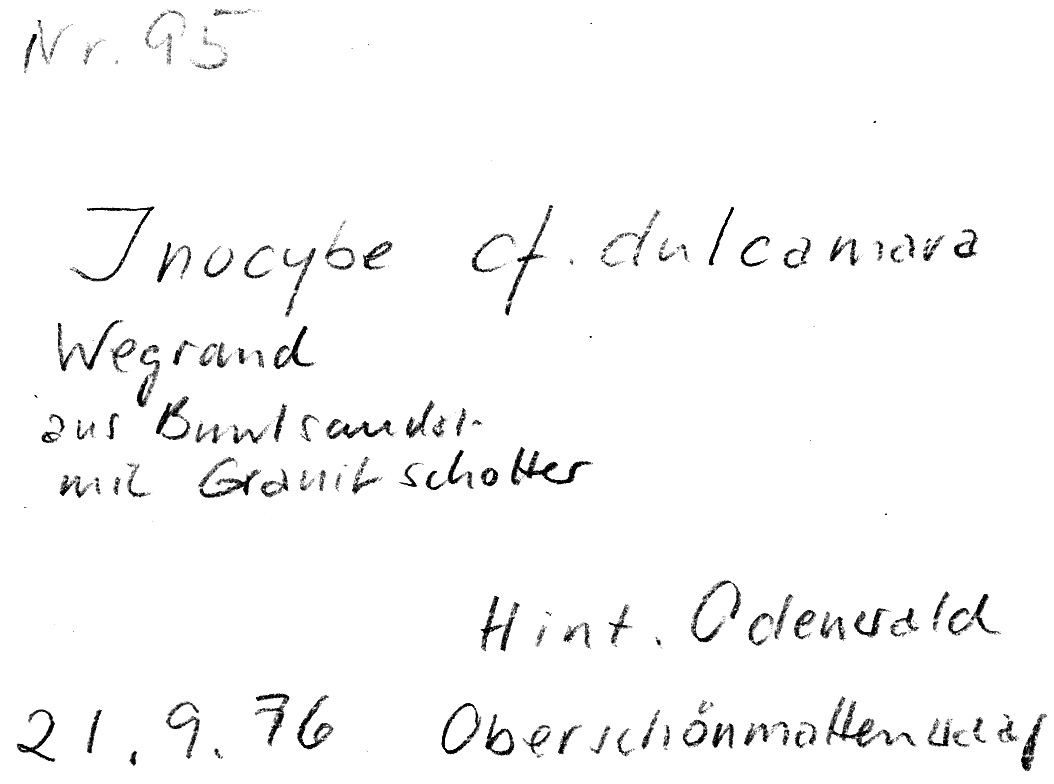 Nr. 95
Inocybe cf. dulcamara
Wegrand
aus Buntsandst.
mit Granitschotter
Hint. Odenwald
21.9.76 Oberschönmattenwag